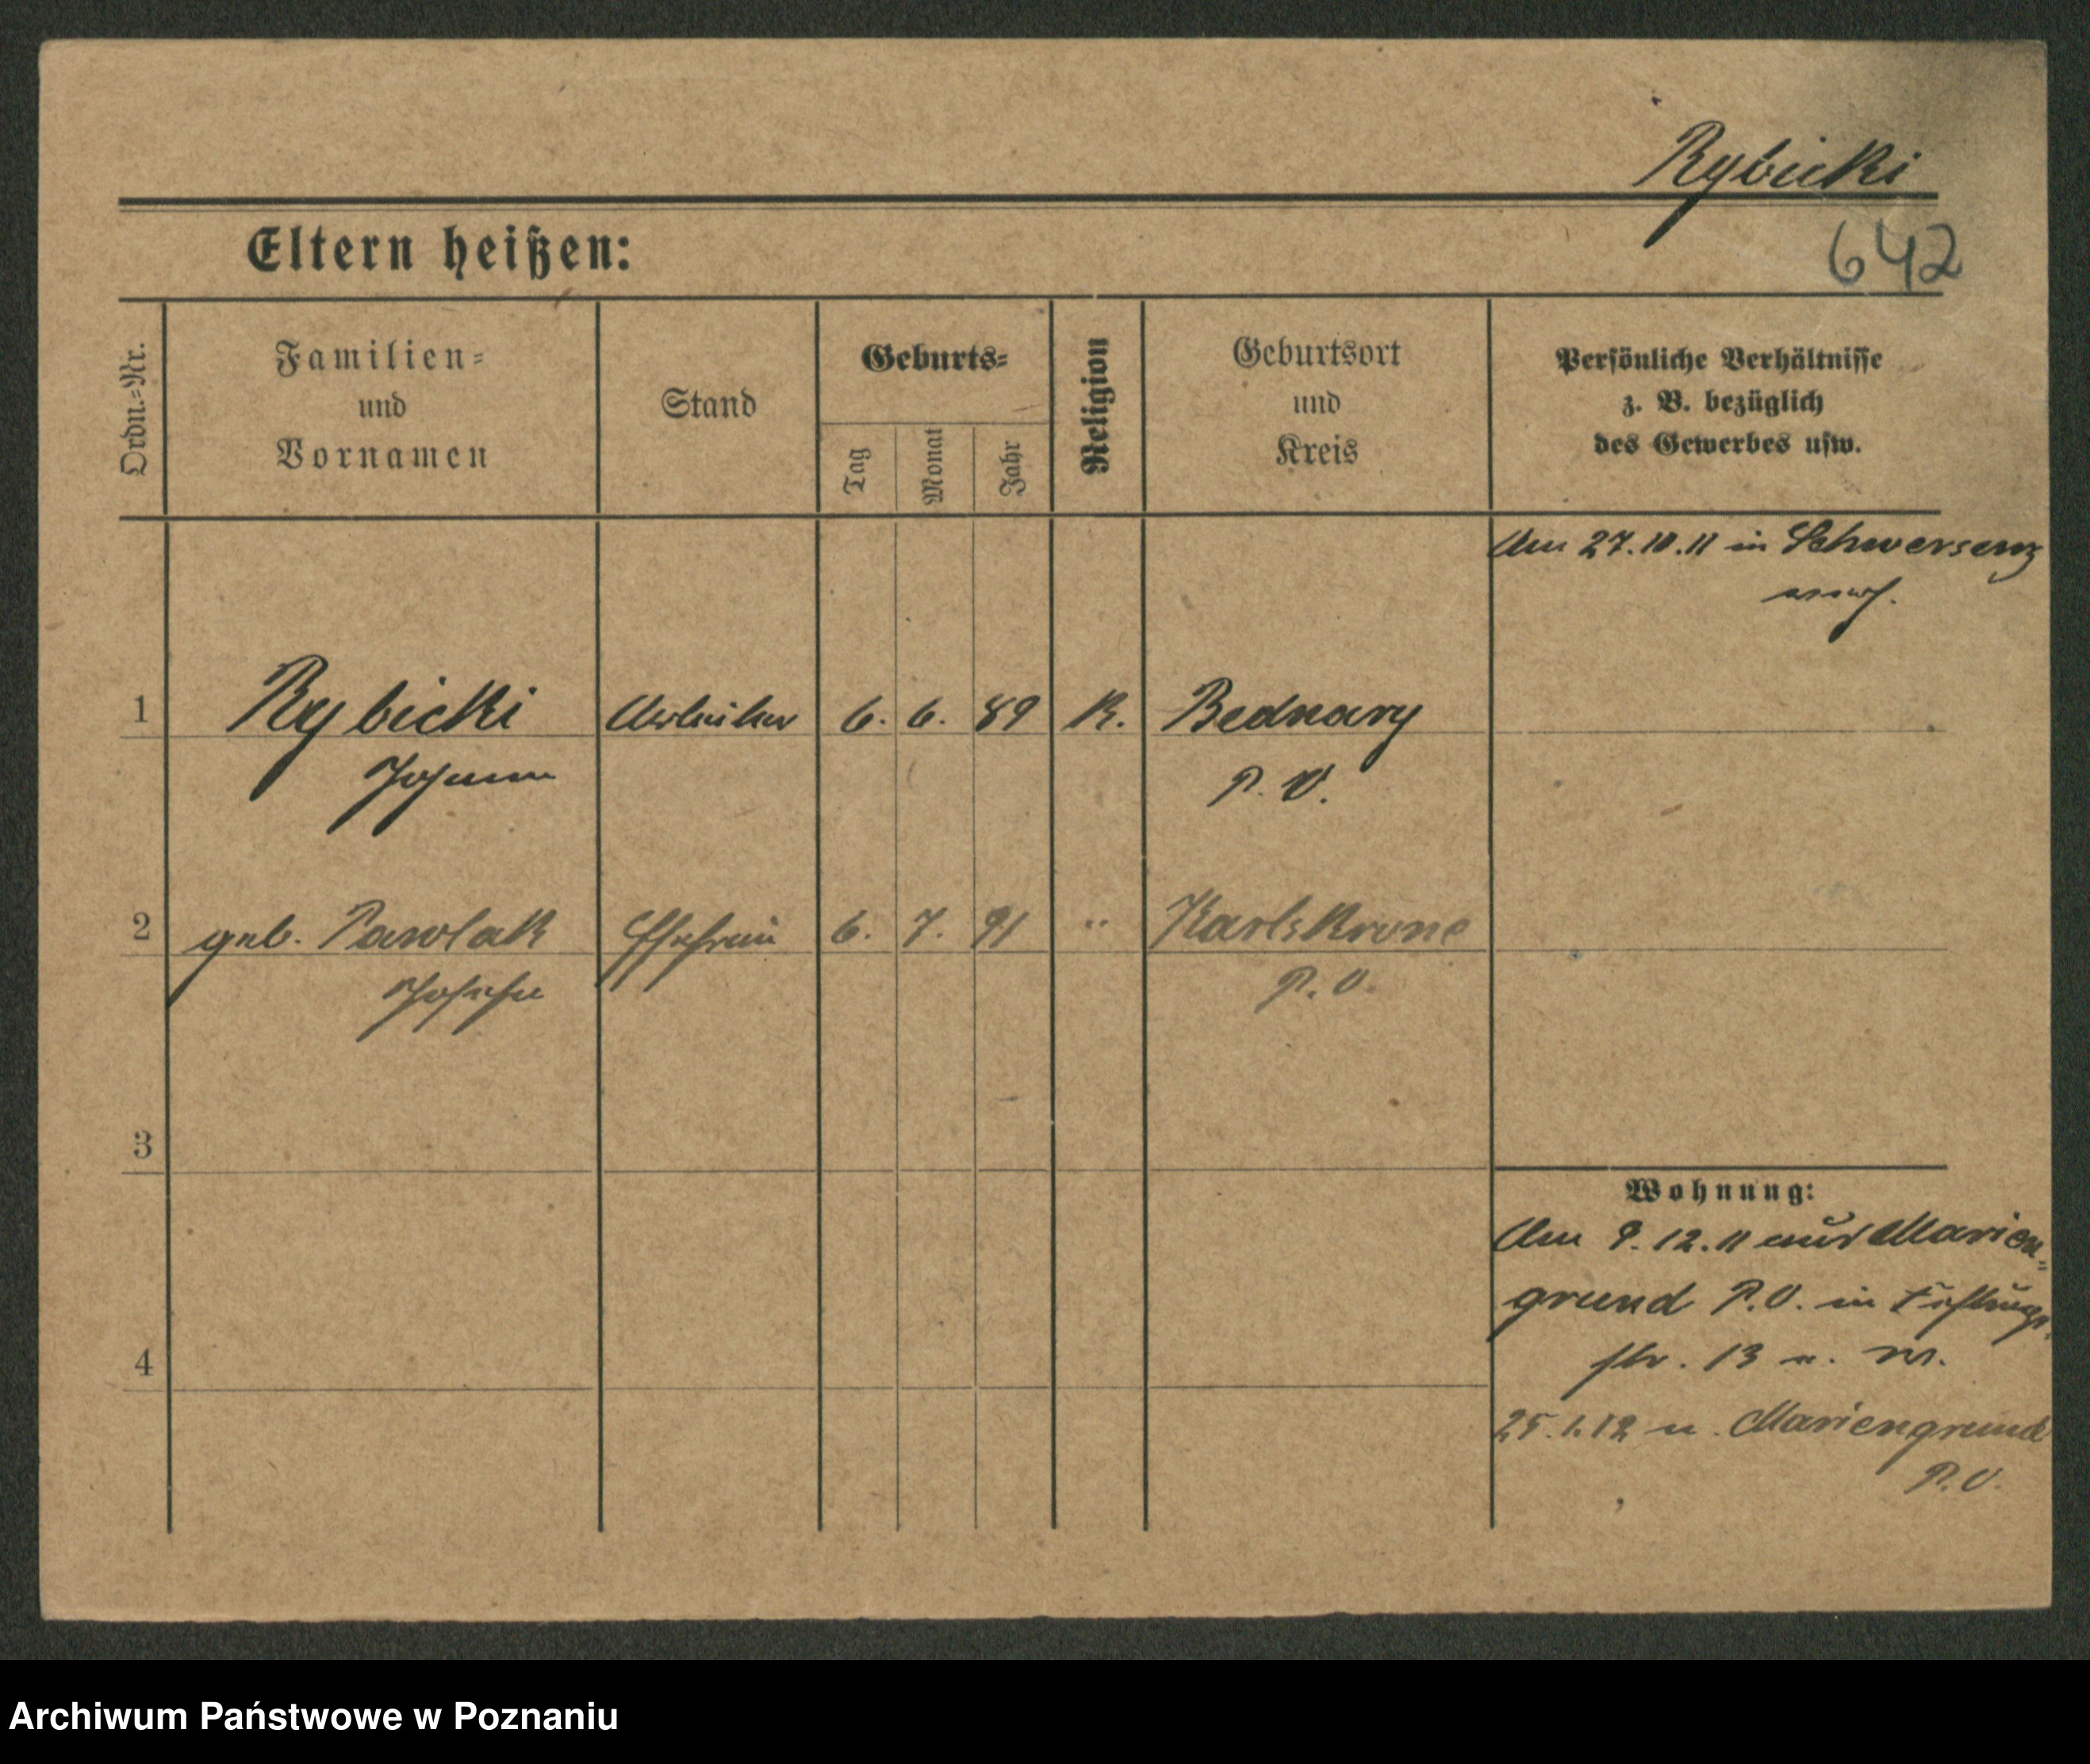 Rybicki
642
Eltern heißen:
Ordn.=Nr.
Familien=
und
Vornamen
Stand
Geburts=
Tag
Monat
Jahr
Religion
Geburtsort
und
Kreis
Persönliche Verhältnisse
z. B. bezüglich
des Gewerbes usw.
Am 27.10.11 in Schwersenz
1 Rybicki Arbeiter 6. 6. 89 K. Bednary
Johann P. O.
2 geb. Pawlak Ehefrau 6. 7. 91 " Karlskrone
Josefa P. O.
3
Wohnung:
Am 9.12.11 aus Marien=
grund P.O. in
str. 13 a. M.
4
25.1.12 n. Mariengrund
P.O.
Archiwum Państwowe w Poznaniu